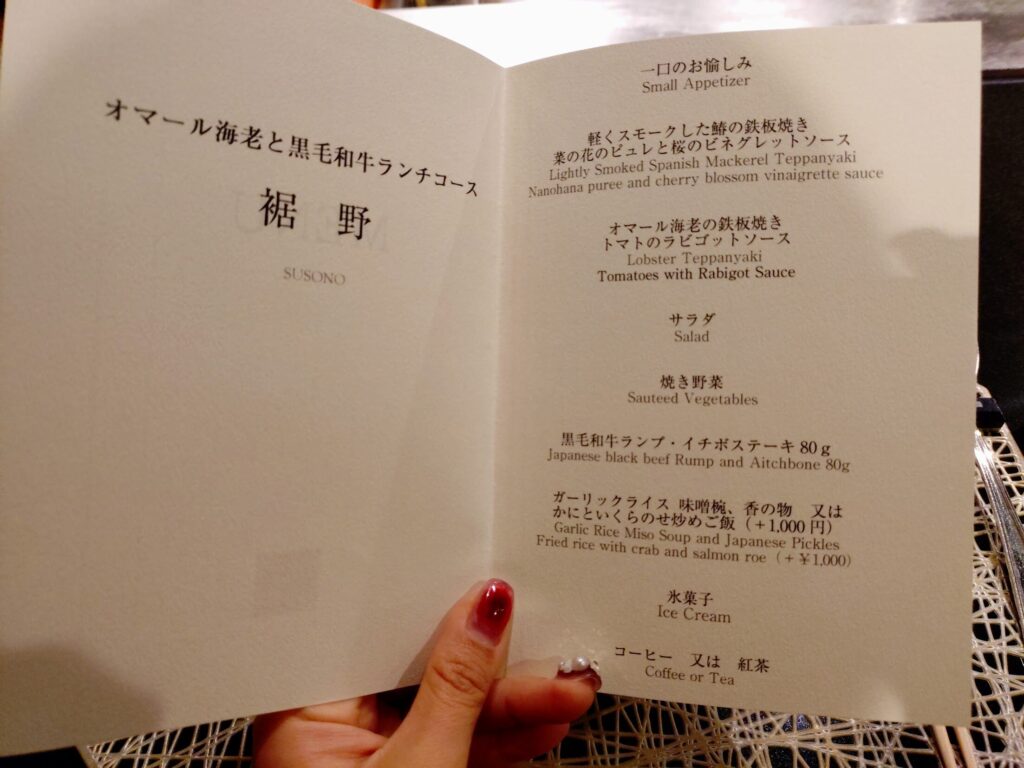 オマール海老と黒毛和牛ランチコース
裾 野
SUSONO
一口のお愉しみ
Small Appetizer
軽くスモークした鰆の鉄板焼き
菜の花のピュレと桜のビネグレットソース
Lightly Smoked Spanish Mackerel Teppanyaki
Nanohana puree and cherry blossom vinaigrette sauce
オマール海老の鉄板焼き
トマトのラビゴットソース
Lobster Teppanyaki
Tomatoes with Rabigot Sauce
サラダ
Salad
焼き野菜
Sauteed Vegetables
黒毛和牛ランプ・イチボステーキ 80g
Japanese black beef Rump and Aitchbone 80g
ガーリックライス 味噌椀、香の物 又は
かにといくらのせ炒めご飯（+1,000 円）
Garlic Rice Miso Soup and Japanese Pickles
Fried rice with crab and salmon roe（+¥1,000）
氷菓子
Ice Cream
コーヒー 又は 紅茶
Coffee or Tea